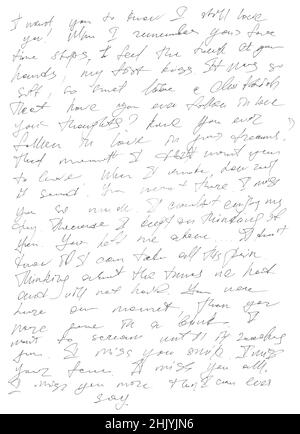 I want you to know I still love
you! When I remember your face
time stops, to feel the touch of your
hands, my first kiss It was so
soft, so sweet like a
that have you ever fallen in love
your thoughts? have you ever
fallen in love in your dreams.
that moment I want you
to come. When I woke,
it seemed. You weren't there I miss
you so much. I couldn't enjoy my
day because I kept on thinking of
you. You left me alone ... I don't
know if I can take all this pain
thinking about the times we had
and will not have. You were
here one moment, then you
were gone in a blink. I
want to scream until it
you. I miss you smile. I miss
your face. I miss you all,
I miss you more than I can ever
say.
alamy
Image ID: 2HJYJN6
www.alamy.com